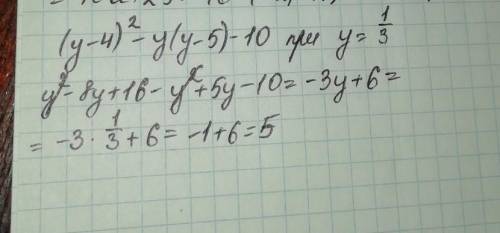 (y-4)² - y(y-5)-10 при y = 1/3
y²-8y+16-y²+5y-10=-3y+6=
= -3·1/3+6= -1+6=5